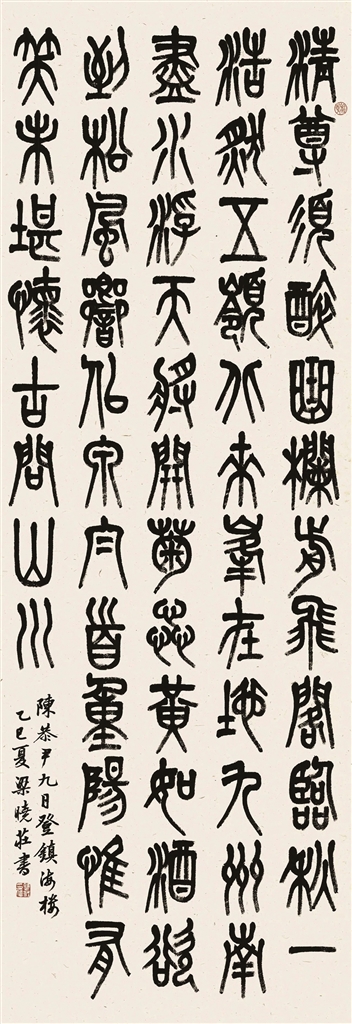 清尊須醉曲欄前飛閣臨秋一
浩然五嶺北來峯在地九州南
盡水浮天將開菊蕊黃如酒欲
到松風響似泉白首重陽惟有
笑未堪懷古問山川
陳恭尹九日登鎮海樓
乙巳夏梁曉莊書